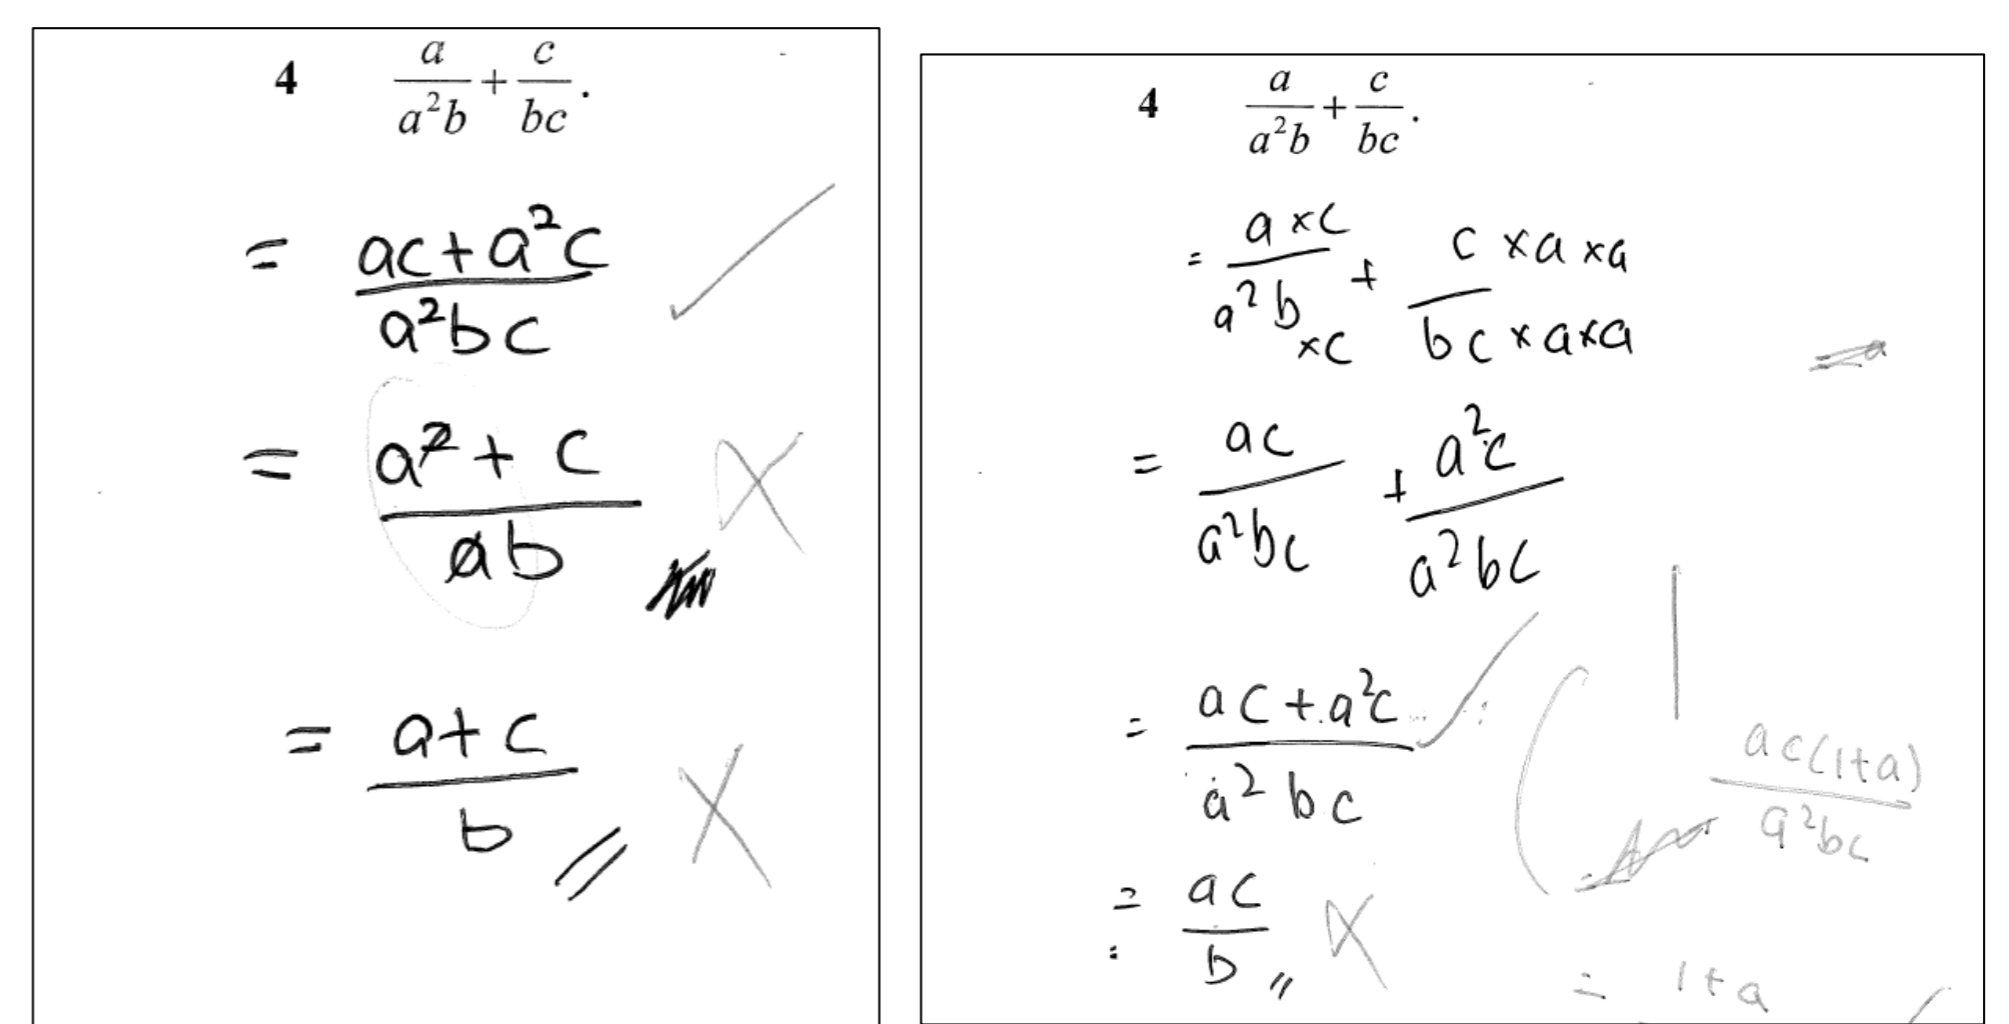 4 a/a²b + c/bc.
= ac+a²c/a²bc
= a²+c/ab
= a+c/b
4 a/a²b + c/bc.
= a×c/a²b×c + c×a×a/bc×a×a
= ac/a²bc + a²c/a²bc
= ac+a²c/a²bc
ac(1+a)/a²bc
= ac/b
= 1+a